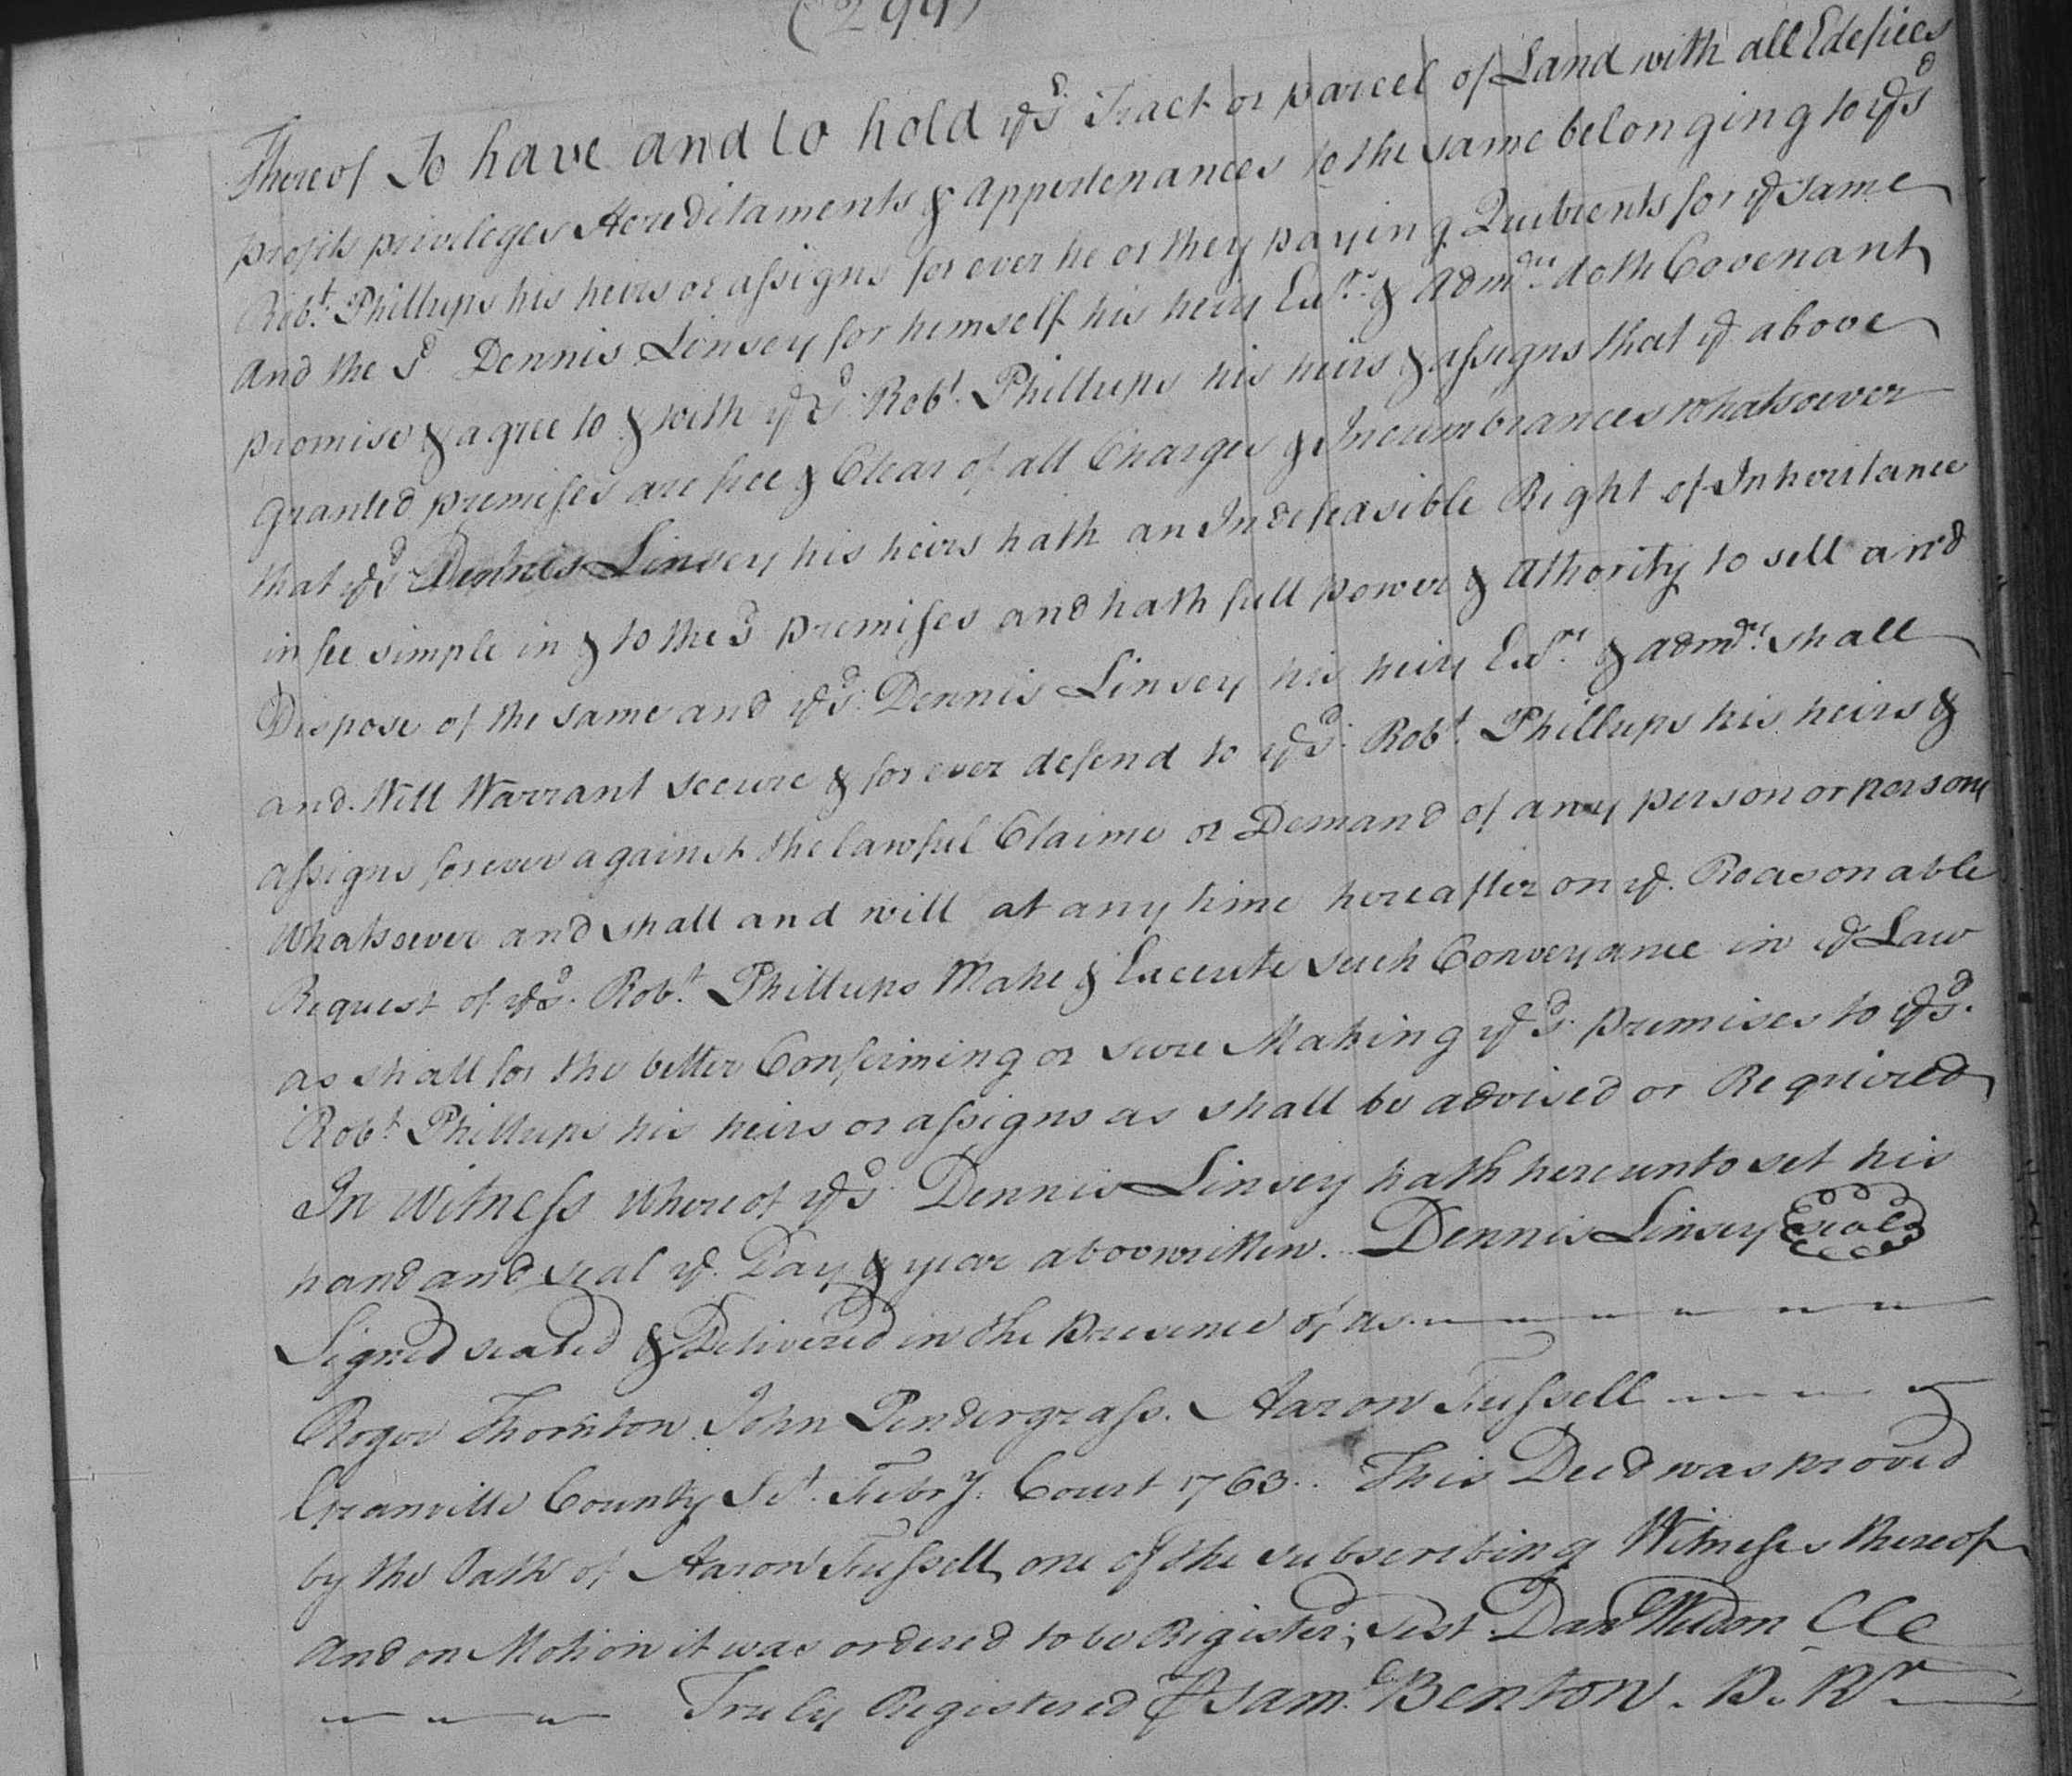 (299)
Thereof To have and to hold ye sd Tract or parcel of Land with all Edefices
profits priveleges Hereditaments & appertenances to the same belonging to ye sd
Robt. Phillups his heirs or assigns for ever he or they paying Quitrents for ye same
And the sd Dennis Linsey for himself his heirs Exrs. & admrs. doth Covenant
promise & agree to & with ye sd. Robt. Phillups his heirs & assigns that ye above
granted premises are free & Clear of all Charges & Incumbrances whatsoever
that ye sd Dennis Linsey his heirs hath an Indefeasible Right of Inheritance
in fee simple in & to the sd premises and hath full power & athority to sell and
Dispose of the same and ye sd. Dennis Linsey his heirs Exrs. & admrs. shall
and Will Warrant secure & for ever defend to ye sd. Robt. Phillups his heirs &
assigns forever against the lawful Claime or Demand of any person or persons
Whatsoever and shall and will at any time hereafter on ye. Reasonable
Request of ye sd. Robt. Phillups Make & Execute such Conveyance in ye Law
as shall for the better Confirming or sure Making ye sd. premises to ye sd.
Robt. Phillups his heirs or assigns as shall be advised or Required
In Witness whereof ye sd Dennis Linsey hath hereunto set his
hand and seal ye. Day & year abovwritten. Dennis Linsey seal
Signed sealed & Delivered in the Presence of us.
Roger Thornton John Pendergrass. Aaron Fussell
Granville County Sct. Febry. Court 1763. This Deed was proved
by the Oath of Aaron Fussell one of the subscribing Witneses thereof
And on Motion it was ordered to be Register'd, Test Danl Weldon CCe
Truly Registered P Saml. Benton. P. Rr